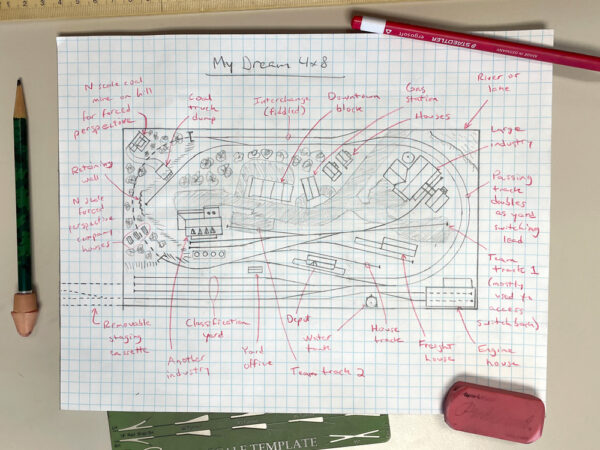 My Dream 4x8
N scale coal
mine on hill
for forced
perspective
Coal
truck
dump
Interchange
(fiddled)
Downtown
block
Gas
station
Houses
River or
lake
Large
industry
Passing
track
doubles
as yard
switching
lead
Team
track 1
(mostly
used to
access
switchback)
Retaining
wall
N scale
forced
perspective
company
houses
Removable
staging
cassette
Another
industry
Classification
yard
Yard
office
Depot
Team track 2
Water
tank
House
track
Freight
house
Engine
house
ergosoft
STAEDTLER
TEMPLATE